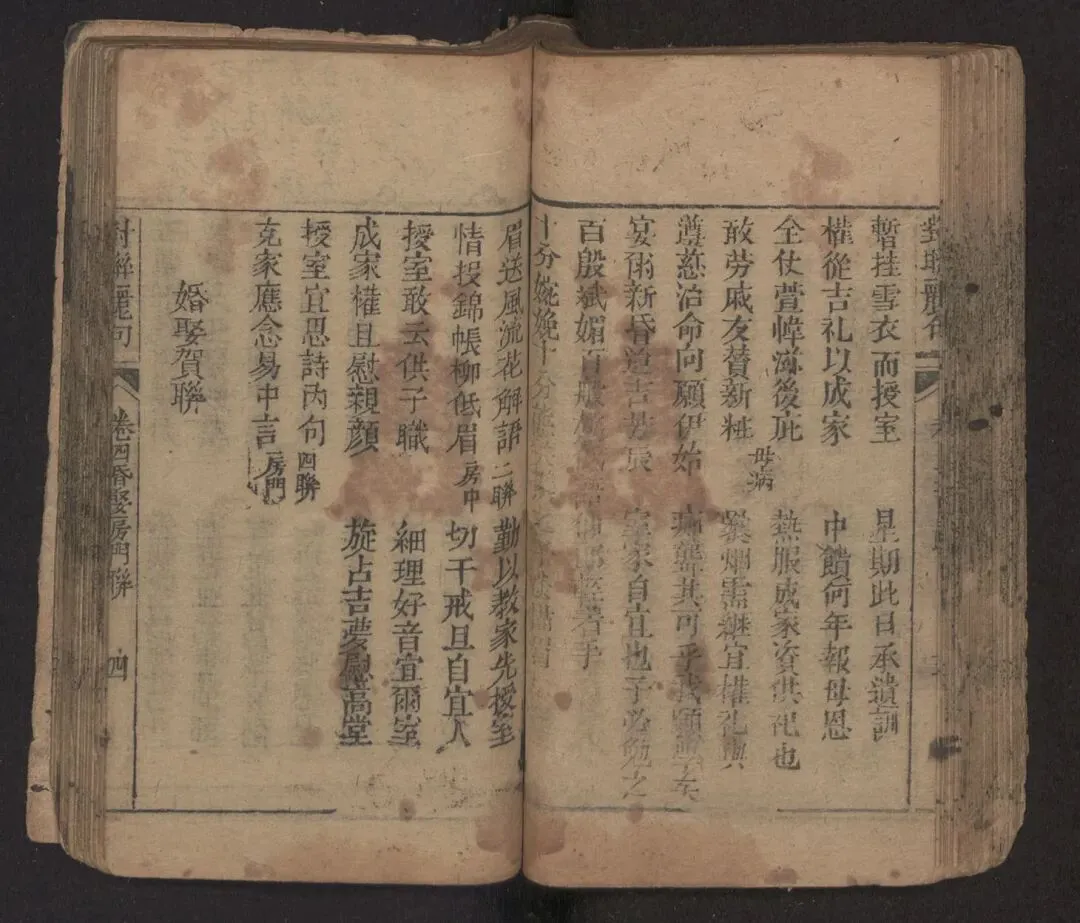 對聯麗句
暫挂雪衣而授室 星期此日承遺訓
權從吉礼以成家 中饋何年報母恩
全仗萱幃滋後庇 燕服成家資供祀也
敢劳戚友贊新粧 母病
遵慈治命向願伊始 其可乎我願
宴尔新昏迨吉芳辰 室家自宜也子必勉之
百般斌媚百般
十分婉娩十分
眉送風流花解語 二聯 勤以教家先授室
情投錦帳柳低眉 房中 切干戒旦自宜人
授室敢云供子職 細理好音宜爾室
成家權且慰親顔 旋占吉夢慰高堂
授室宜思詩內句 四聯
克家應念易中言 房門
婚娶賀聯
對聯麗句 卷四婚娶房門聯 四